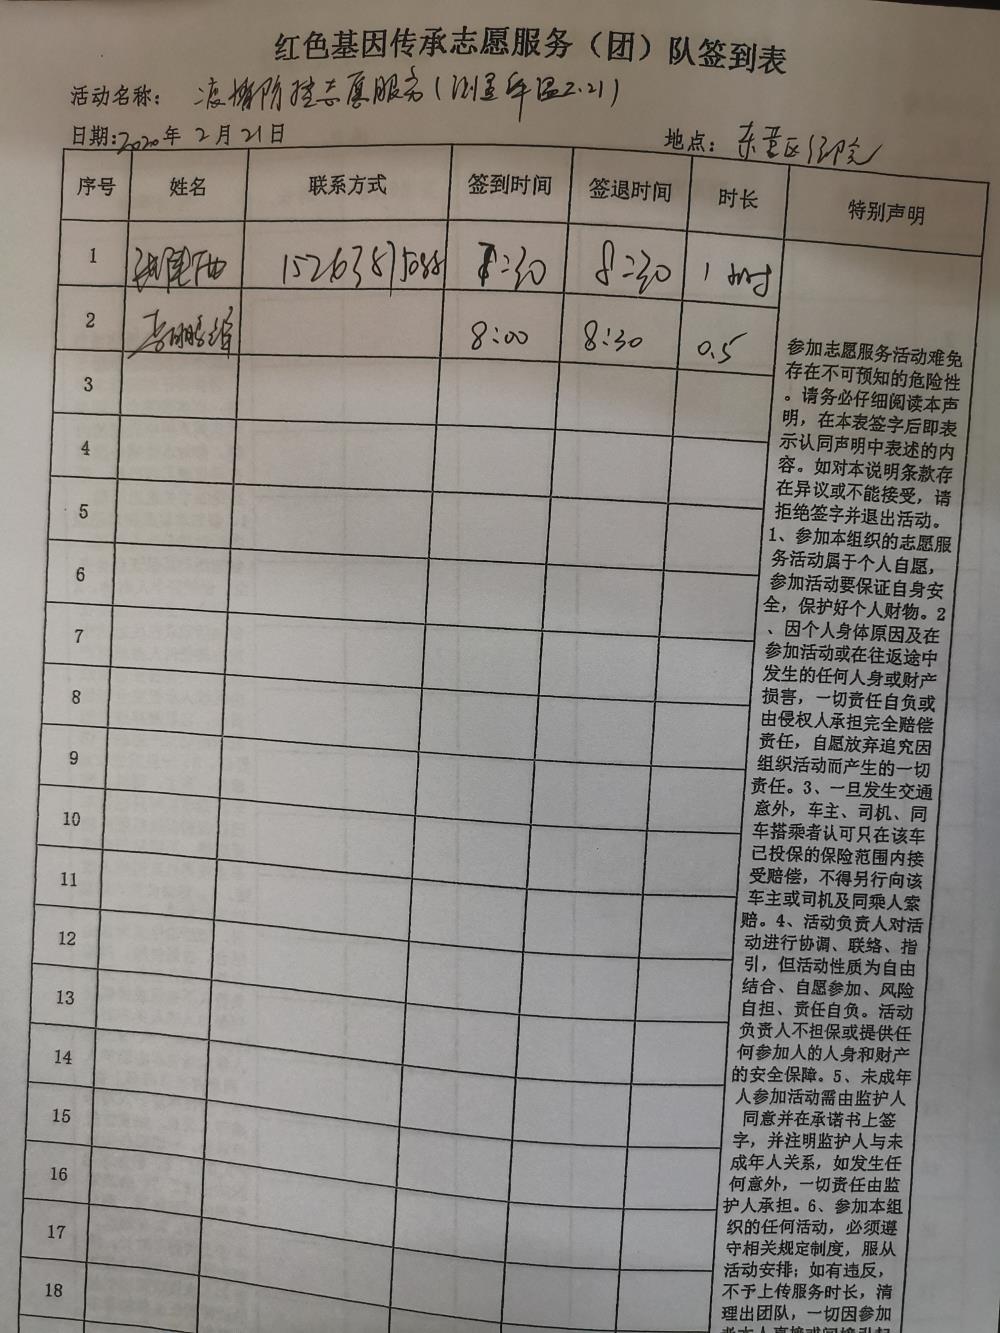 红色基因传承志愿服务（团）队签到表
活动名称： 疫情防控志愿服务（测量体温2.21）
日期：2020年 2月 21日 地点：
序号 姓名 联系方式 签到时间 签退时间 时长 特别声明
1 8:30 1小时
2 8:00 8:30 0.5
3
4
5
6
7
8
9
10
11
12
13
14
15
16
17
18
参加志愿服务活动难免
存在不可预知的危险性
。请务必仔细阅读本声
明，在本表签字后即表
示认同声明中表述的内
容。如对本说明条款存
在异议或不能接受，请
拒绝签字并退出活动。
1、参加本组织的志愿服
务活动属于个人自愿，
参加活动要保证自身安
全，保护好个人财物。2
、因个人身体原因及在
参加活动或在往返途中
发生的任何人身或财产
损害，一切责任自负或
由侵权人承担完全赔偿
责任，自愿放弃追究因
组织活动而产生的一切
责任。3、一旦发生交通
意外，车主、司机、同
车搭乘者认可只在该车
已投保的保险范围内接
受赔偿，不得另行向该
车主或司机及同乘人索
赔。4、活动负责人对活
动进行协调、联络、指
引，但活动性质为自由
结合、自愿参加、风险
自担、责任自负。活动
负责人不担保或提供任
何参加人的人身和财产
的安全保障。5、未成年
人参加活动需由监护人
同意并在承诺书上签
字，并注明监护人与未
成年人关系，如发生任
何意外，一切责任由监
护人承担。6、参加本组
织的任何活动，必须遵
守相关规定制度，服从
活动安排；如有违反，
不予上传服务时长，清
理出团队，一切因参加